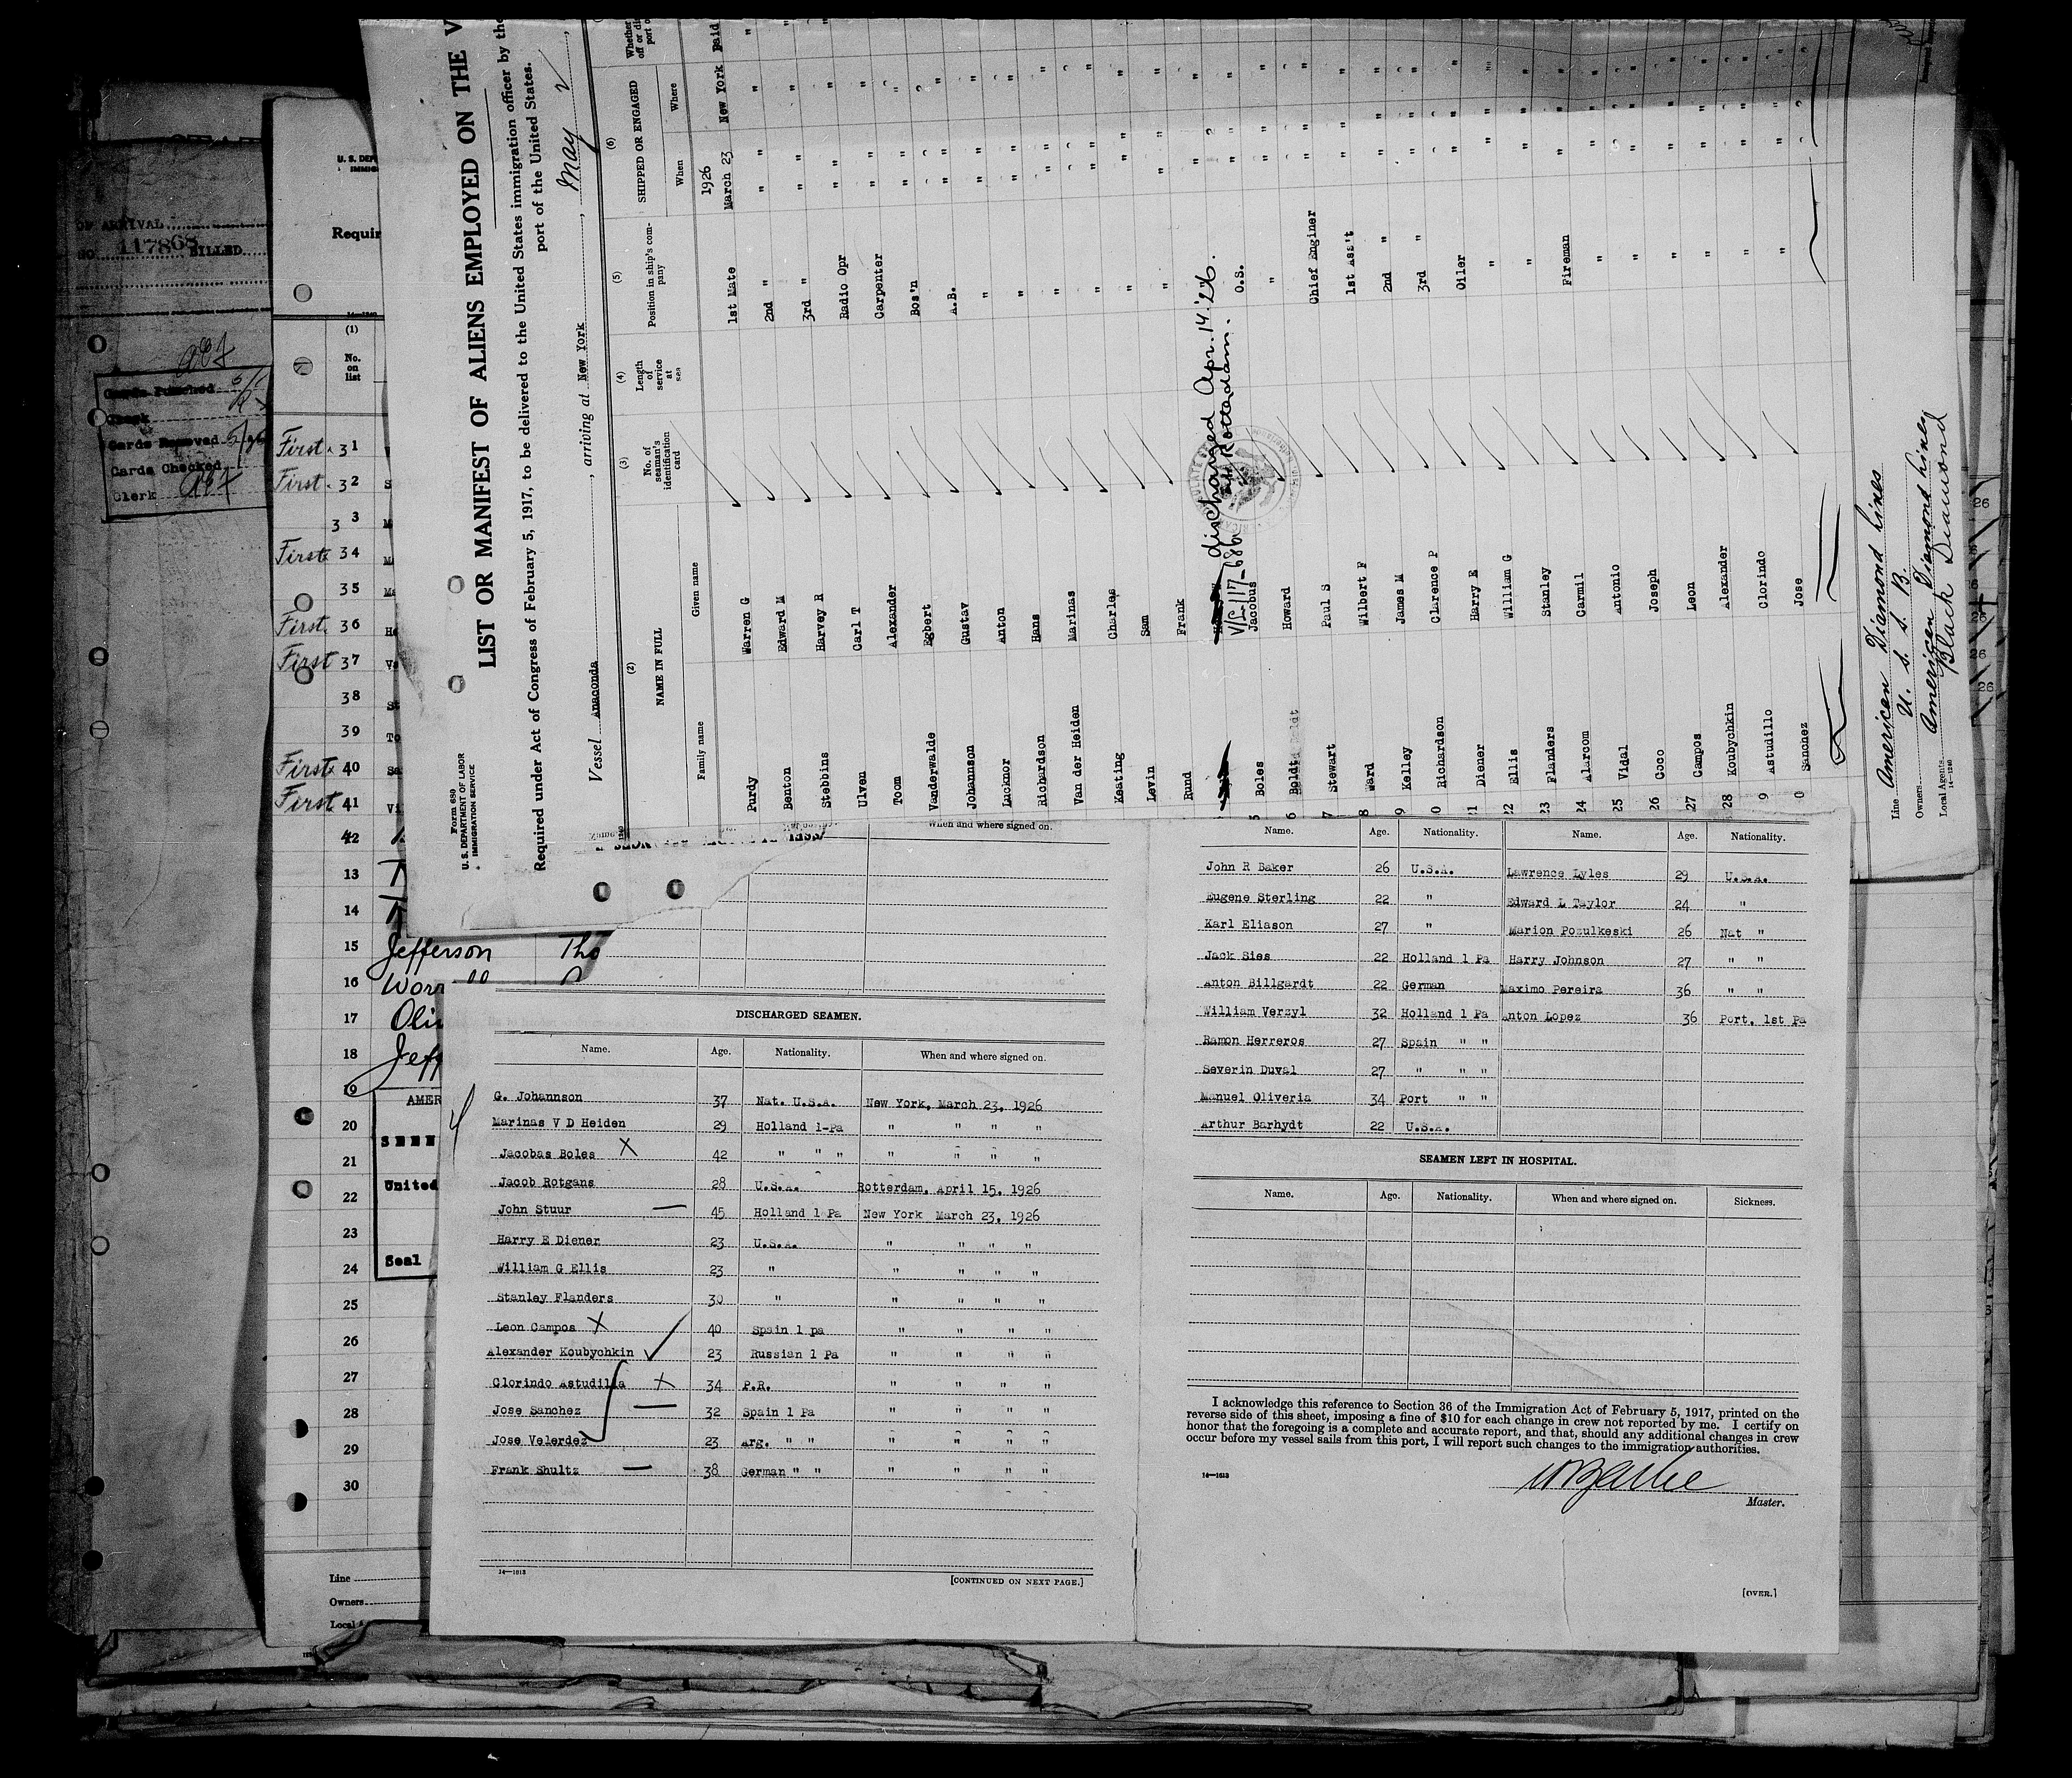 OF ARRIVAL
NO. 117868 BILLED
Cards Punched
Clerk
Cards Removed
Cards Checked
Clerk
Requir
(1)
No.
on
list
First 31
First 32
33
First 34
35
First 36
First 37
38
39
First 40
First 41
42
13
14
15 Jefferson Tho
16
17
18
19
20
21
22
23
24
25
26
27
28
29
30
AMER
SEEN
United
Seal
Line
Owners
Local
Form 680
U. S. DEPARTMENT OF LABOR
IMMIGRATION SERVICE
LIST OR MANIFEST OF ALIENS EMPLOYED ON THE V
Required under Act of Congress of February 5, 1917, to be delivered to the United States immigration officer by the
port of the United States.
Vessel Anaconda, arriving at New York, May
(2) (3) (4) (5) (6)
NAME IN FULL
Family name Given name
No. of seaman's identification card
Length of service at sea
Position in ship's company
SHIPPED OR ENGAGED
When Where
1926
Purdy Warren G 1st Mate March 23 New York Paid
Benton Edward M 2nd " " " "
Stebbins Harvey R 3rd " " " "
Ulven Carl T Radio Opr " " "
Toom Alexander Carpenter " " "
Vanderwalde Egbert Bos'n " " "
Johannson Gustav A.B. " " "
Lucknor Anton " " " "
Richardson Hans " " " "
Van der Heiden Marinas " " " "
Keating Charles " " " "
Levin Sam " " " "
Rund Frank " " " "
discharged Apr. 14 '26.
at Rotterdam.
V/L 117-686
Boles Jacobus O.S. " "
Boldt Howard " " "
Stewart Paul S Chief Enginer " "
8 Ward Wilbert F 1st Ass't " "
9 Kelley James M 2nd " " "
0 Richardson Clarence P 3rd " " "
21 Diener Harry E Oiler " "
22 Ellis William G " " "
23 Flanders Stanley " " "
24 Alarcom Carmil Fireman " "
25 Vidal Antonio " " "
26 Coco Joseph " " "
27 Campos Leon " " "
28 Koubychkin Alexander " " "
9 Astudillo Clorindo " " "
0 Sanchez Jose " " "
Line American Diamond Lines
Owners U. S. S. B.
Local Agents American Diamond Lines
Black Diamond
14—1240
When and where signed on.
DISCHARGED SEAMEN.
Name. Age. Nationality. When and where signed on.
G. Johannson 37 Nat. U.S.A. New York, March 23, 1926
Marinas V D Heiden 29 Holland 1-Pa " " " "
Jacobas Boles X 42 " " " " " " "
Jacob Rotgans 28 U.S.A. Rotterdam, April 15, 1926
John Stuur — 45 Holland 1 Pa New York March 23, 1926
Harry E Diener 23 U.S.A. " " " "
William G Ellis 23 " " " " "
Stanley Flanders 30 " " " " "
Leon Campos X 40 Spain 1 pa " " " "
Alexander Koubychkin 23 Russian 1 Pa " " " "
Clorindo Astudilla X 34 P.R. " " " "
Jose Sanchez — 32 Spain 1 Pa " " " "
Jose Velerdez 23 Arg. " " " " " "
Frank Shultz — 38 German " " " " " "
14—1613
[CONTINUED ON NEXT PAGE.]
Name. Age. Nationality. Name. Age. Nationality.
John R Baker 26 U.S.A. Lawrence Lyles 29 U.S.A.
Eugene Sterling 22 " Edward L Taylor 24 "
Karl Eliason 27 " Marion Pozulkeski 26 Nat "
Jack Sies 22 Holland 1 Pa Harry Johnson 27 " "
Anton Billgardt 22 German Maximo Pereira 36 " "
William Verzyl 32 Holland 1 Pa Anton Lopez 36 Port. 1st Pa
Ramon Herreros 27 Spain " "
Severin Duval 27 " " "
Manuel Oliveria 34 Port " "
Arthur Barhydt 22 U.S.A.
SEAMEN LEFT IN HOSPITAL.
Name. Age. Nationality. When and where signed on. Sickness.
I acknowledge this reference to Section 36 of the Immigration Act of February 5, 1917, printed on the
reverse side of this sheet, imposing a fine of $10 for each change in crew not reported by me. I certify on
honor that the foregoing is a complete and accurate report, and that, should any additional changes in crew
occur before my vessel sails from this port, I will report such changes to the immigration authorities.
14—1613
Master.
[OVER.]